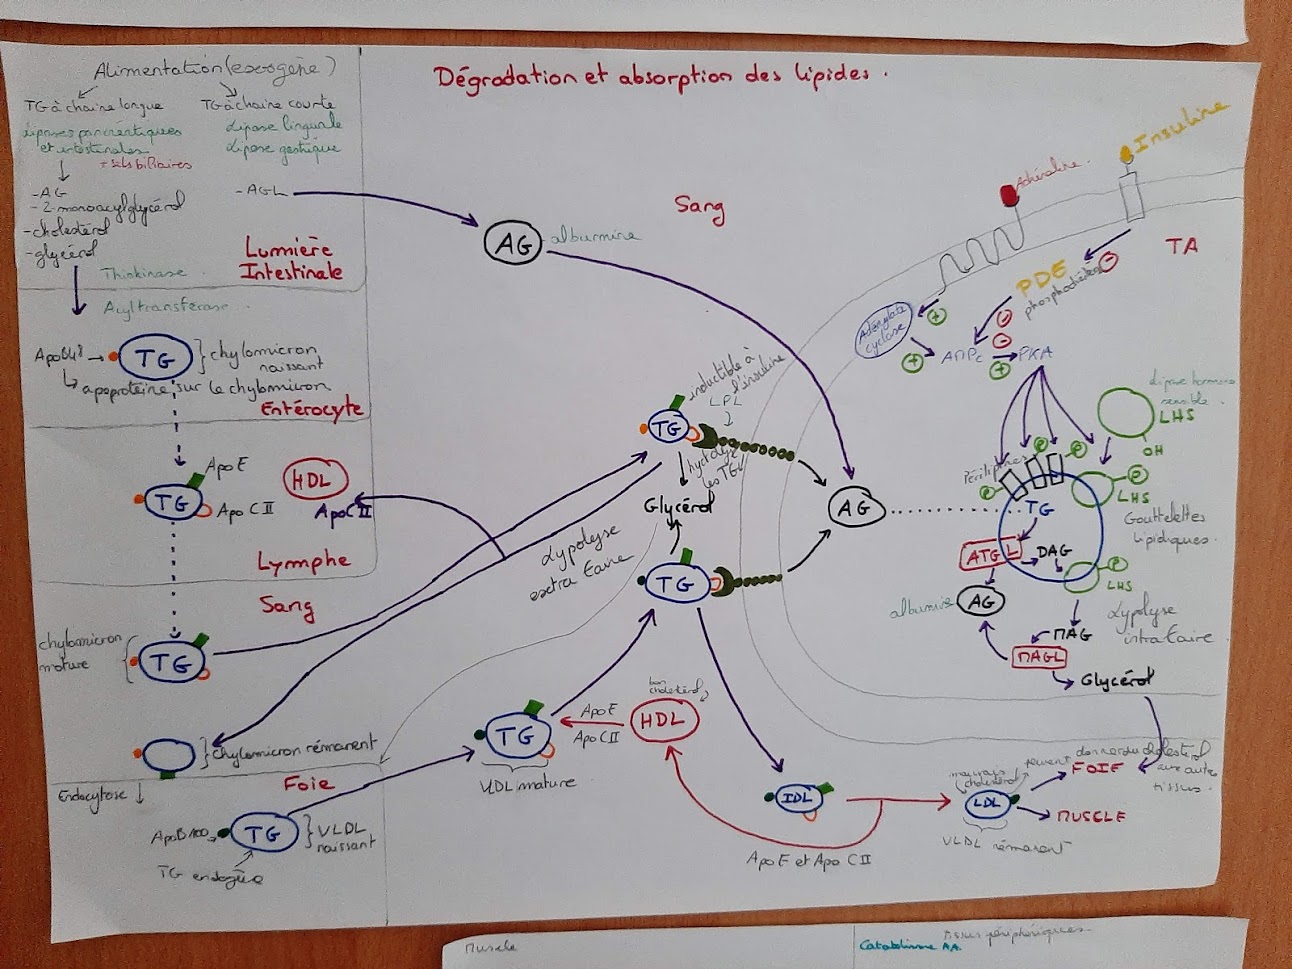 Dégradation et absorption des lipides.
Alimentation (exogène)
TG à chaîne longue
lipases pancréatiques
et intestinales
+ sels biliaires
- AG
- 2-monoacylglycérol
- cholestérol
- glycérol
TG à chaîne courte
Lipase linguale
Lipase gastrique
- AGL
Lumière
Intestinale
Thiokinase
Acyltransférase
ApoB48
TG
chylomicron
naissant
apoprotéine sur le chylomicron
Entérocyte
ApoE
TG
ApoCII
HDL
ApoCII
Lymphe
Sang
chylomicron
mature
TG
chylomicron rémanent
Endocytose
Foie
ApoB100
TG
VLDL
naissant
TG endogène
Sang
AG
albumine
inductible à
l'insuline
LPL
TG
hydrolyse
les TG
Glycérol
Lypolyse
extra Caire
TG
AG
TG
VLDL mature
ApoE
ApoCII
bon
cholestérol
HDL
IDL
ApoE et ApoCII
mauvais
cholestérol
LDL
VLDL rémanent
peuvent
donner du cholestérol
aux autres
tissus.
FOIE
MUSCLE
Adrénaline
Insuline
TA
PDE
Adénylate
cyclase
+
+
-
-
-
+
AMPc
PKA
Lipase hormono
sensible
LHS
OH
Périlipines
P
P
P
P
LHS
TG
Gouttelettes
lipidiques
ATGL
DAG
P
LHS
albumine
AG
Lypolyse
intra Caire
MAG
MAGL
Glycérol
Muscle
tissus périphériques
Catabolisme AA.